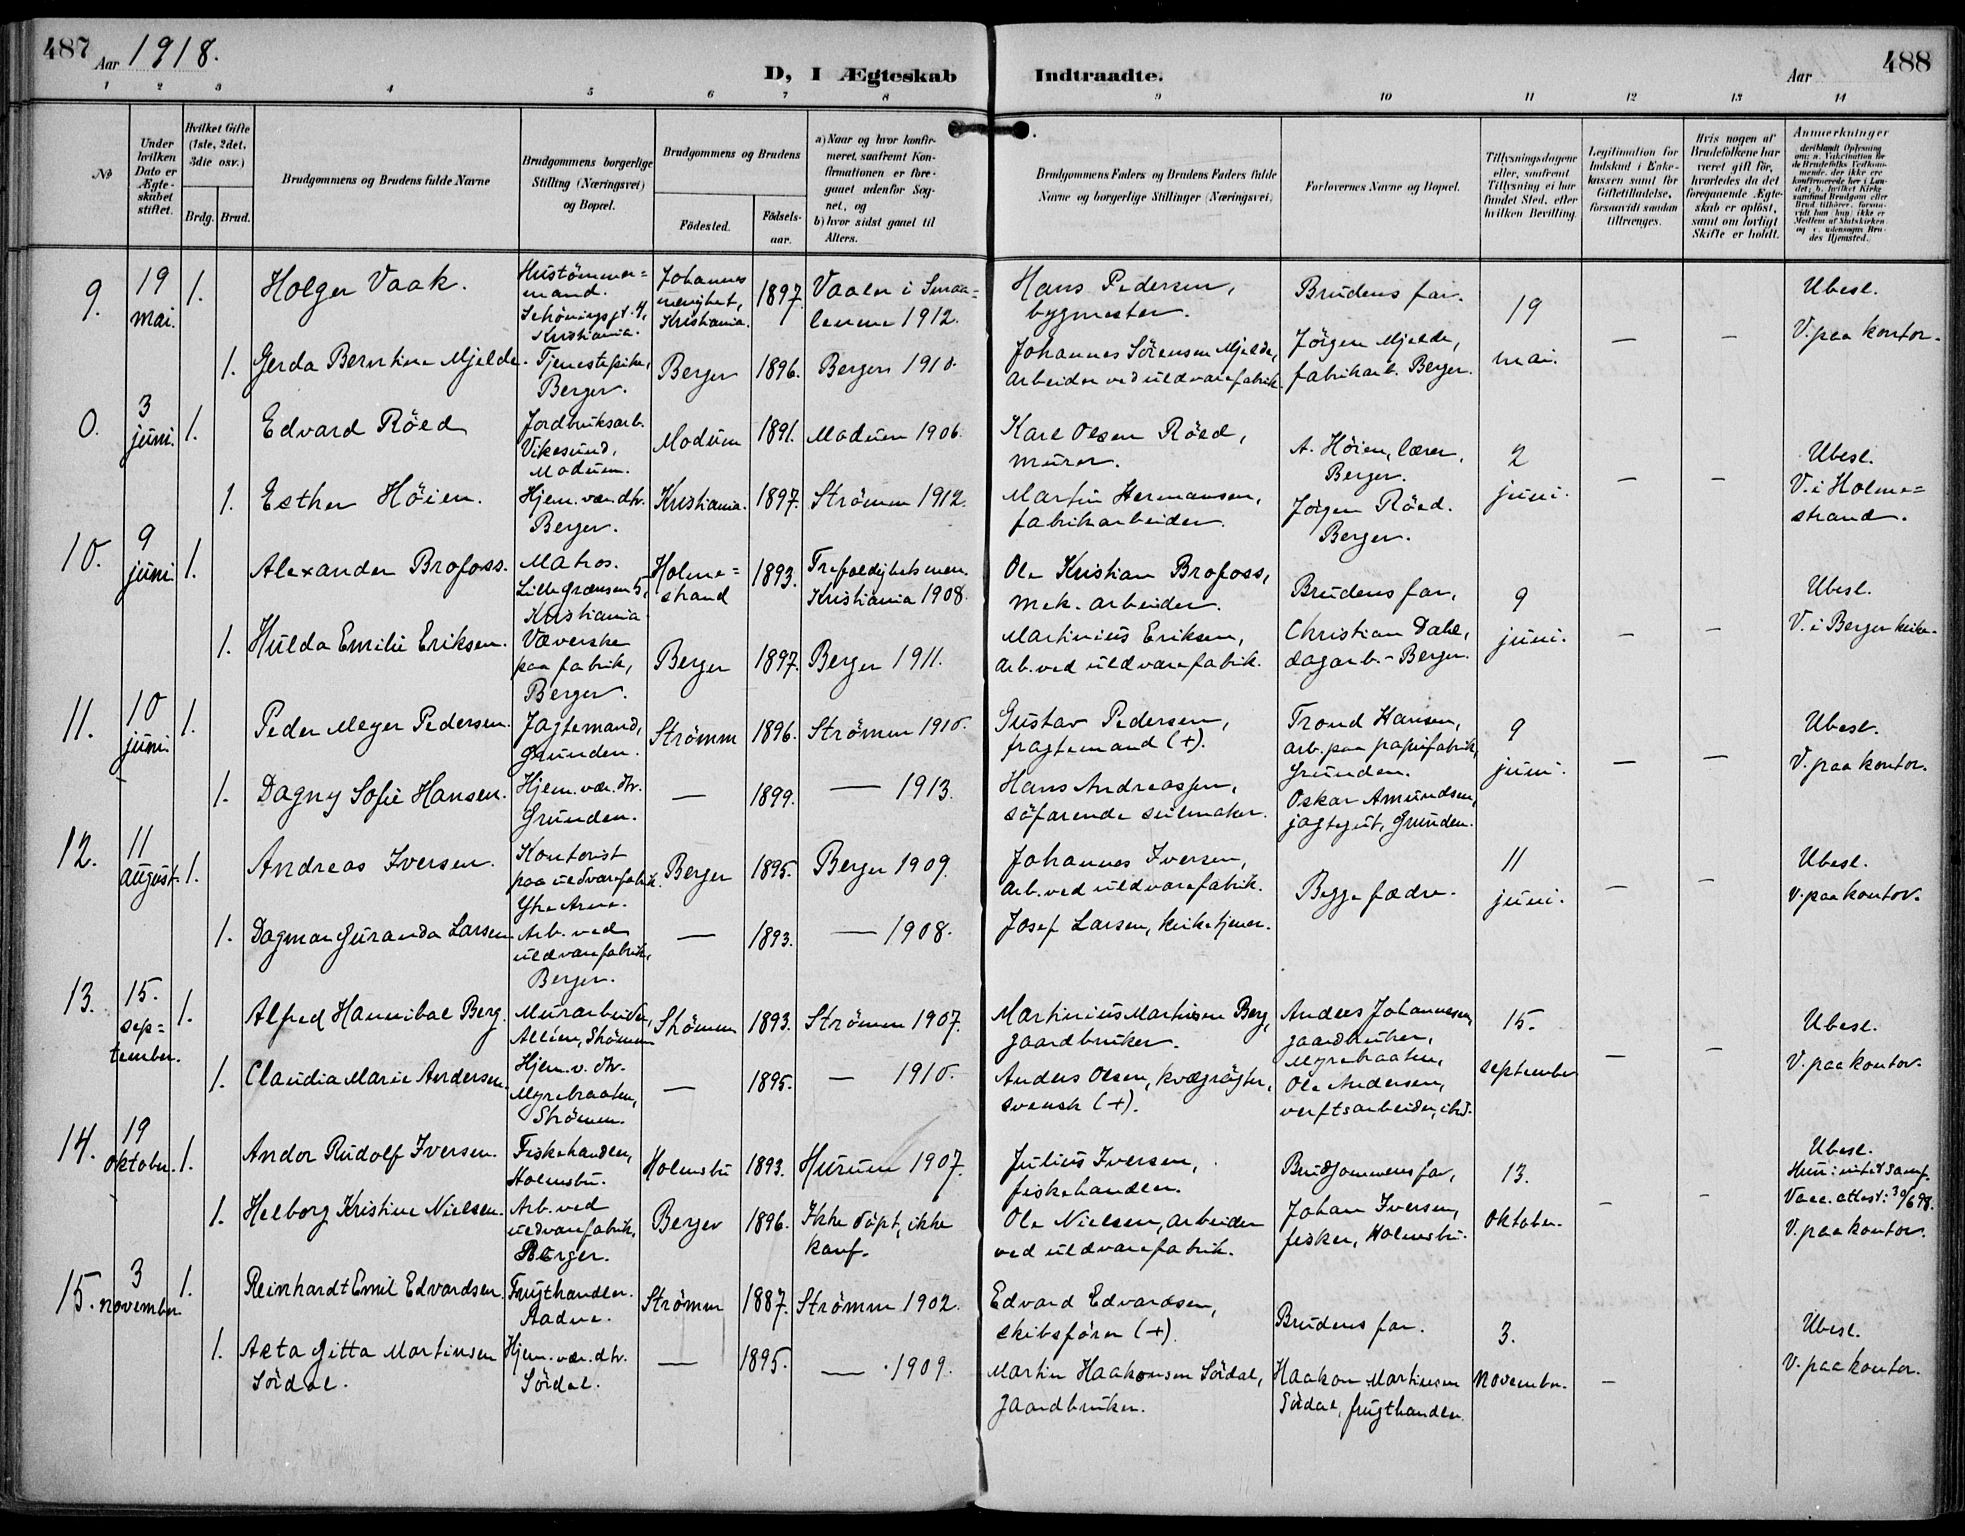 487
Aar 1918.
D, I Ægteskab Indtraadte.
Aar
488
1 2 3 4 5 6 7 8 9 10 11 12 13 14
No
Under hvilken Dato er Ægteskabet stiftet.
Hvilket Gifte (1ste, 2det, 3die osv.)
Brdg. Brud.
Brudgommens og Brudens fulde Navne
Brudgommens borgerlige Stilling (Næringsvei) og Bopæl.
Brudgommens og Brudens
Fødested.
Fødselsaar.
a) Naar og hvor konfirmeret, saafremt Konfirmationen er foregaaet udenfor Sognet, og
b) hvor sidst gaaet til Alters.
Brudgommens Faders og Brudens Faders fulde Navne og borgerlige Stillinger (Næringsvei)
Forlovernes Navne og Bopæl.
Tillysningsdagene eller, saafremt Tillysning ei har fundet Sted, efter hvilken Bevilling.
Legitimation for Indskud i Enkekassen samt for Giftetilladelse, forsaavidt saadan tiltrænges.
Hvis nogen af Brudefolkene har været gift før, hvorledes da det foregaaende Ægteskab er opløst, samt om lovligt Skifte er holdt.
Anmerkninger
9. 19 mai. 1. Holger Vaak. Hustömmermand. Schöningsgt. 4, Kristiania. Johannes menighet, Kristiania. 1897. Vaaler i Smaalenene 1912. Hans Pedersen, bygmester. Brudens far. 19 mai. — — Ubesl. V. paa kontor.
1. Gerda Berntine Mjelde. Tjenestepike, Berger. Berger 1896. Berger 1910. Johannes Sörensen Mjelde, arbeider ved uldvarefabrik. Jörgen Mjelde, fabrikarb. Berger.
0. 3 juni. 1. Edvard Röed Jordbruksarb. Vikesund, Modum. Modum 1891. Modum 1906. Karl Olsen Röed, murer. A. Höien, lærer, Berger. 2 juni. — — Ubesl. V. i Holmestrand.
1. Esther Höien. Hjem. vær. dtr. Berger. Kristiania. 1897. Strömm 1912. Martin Hermansen, fabrikarbeider. Jörgen Röed. Berger.
10. 9 juni. 1. Alexander Brofoss. Matros. Lille Grænsen 5, Kristiania. Holmestrand 1893. Trefoldighets men. Kristiania 1908. Ole Kristian Brofoss, mek. arbeider. Brudens far, 9 juni. — — Ubesl. V. i Berger kirke.
1. Hulda Emilie Eriksen. Væverske paa fabrik, Berger. Berger 1897. Berger 1911. Martinius Eriksen, arb. ved uldvarefabrik. Christian Dahl, dagarb. - Berger.
11. 10 juni. 1. Peder Meyer Pedersen. Jagtemand, Grunden. Strömm 1896. Strömm 1910. Gustav Pedersen, fragtemand (+). Trond Hansen, arb. paa papirfabrik, Grunden. 9 juni. — — Ubesl. V. paa kontor.
1. Dagny Sofie Hansen. Hjem. vær. dtr. Grunden. — 1899. — 1913. Hans Andreassen, söfarende seilmaker. Oskar Amundsen, jagtegut, Grunden.
12. 11 august. 1. Andreas Iversen. Kontorist paa uldvarefabrik. Ytre Arna. Berger 1895. Berger 1909. Johannes Iversen, arb. ved uldvarefabrik. Begge fædre. 11 juni. — — Ubesl. V. paa kontor.
1. Dagmar Juranda Larsen. Arb. ved uldvarefabrik, Berger. — 1893. — 1908. Josef Larsen, kirketjener.
13. 15. september. 1. Alfred Hannibal Berg. Murarbeider, Strömm Strömm 1893. Strömm 1907. Martinius Martinsen Berg, gaardbruker. Anders Johannesen, gaardbruker, Myrebraaten, 15. september — — Ubesl. V. paa kontor.
1. Claudia Marie Andersen. Hjem. v. dtr. Myrebraaten, Strömm. — 1895. — 1910. Anders Olsen, kvægrögter, svensk (+). Ole Andersen, verftsarbeider, ibid.
14. 19 oktober. 1. Andor Rudolf Iversen. Fiskehandler, Holmsbu. Holmsbu 1893. Hurum 1907. Julius Iversen, fiskehandler. Brudgommens far, 13. oktober. — — Ubesl. Hun: intet samf. Vacc. attest: 30/6 98. V. paa kontor.
1. Helborg Kristine Nielsen. Arb. ved uldvarefabrik, Berger. Berger 1896. Ikke döpt, ikke konf. Ole Nielsen, arbeider ved uldvarefabrik. Johan Iversen, fisker, Holmsbu.
15. 3 november. 1. Reinhardt Emil Edvardsen. Frugthandler. Strömm 1887. Strömm 1902. Edvard Edvardsen, skibsförer (+). Brudens far. 3. november. — Ubesl. V. paa kontor.
1. Asta Gitta Martinsen Sördal. Hjem. vær. dtr. Sördal. — 1895. — 1909. Martin Haakonsen Sördal, gaardbruker. Haakon Martinsen Sördal, frugthandler.